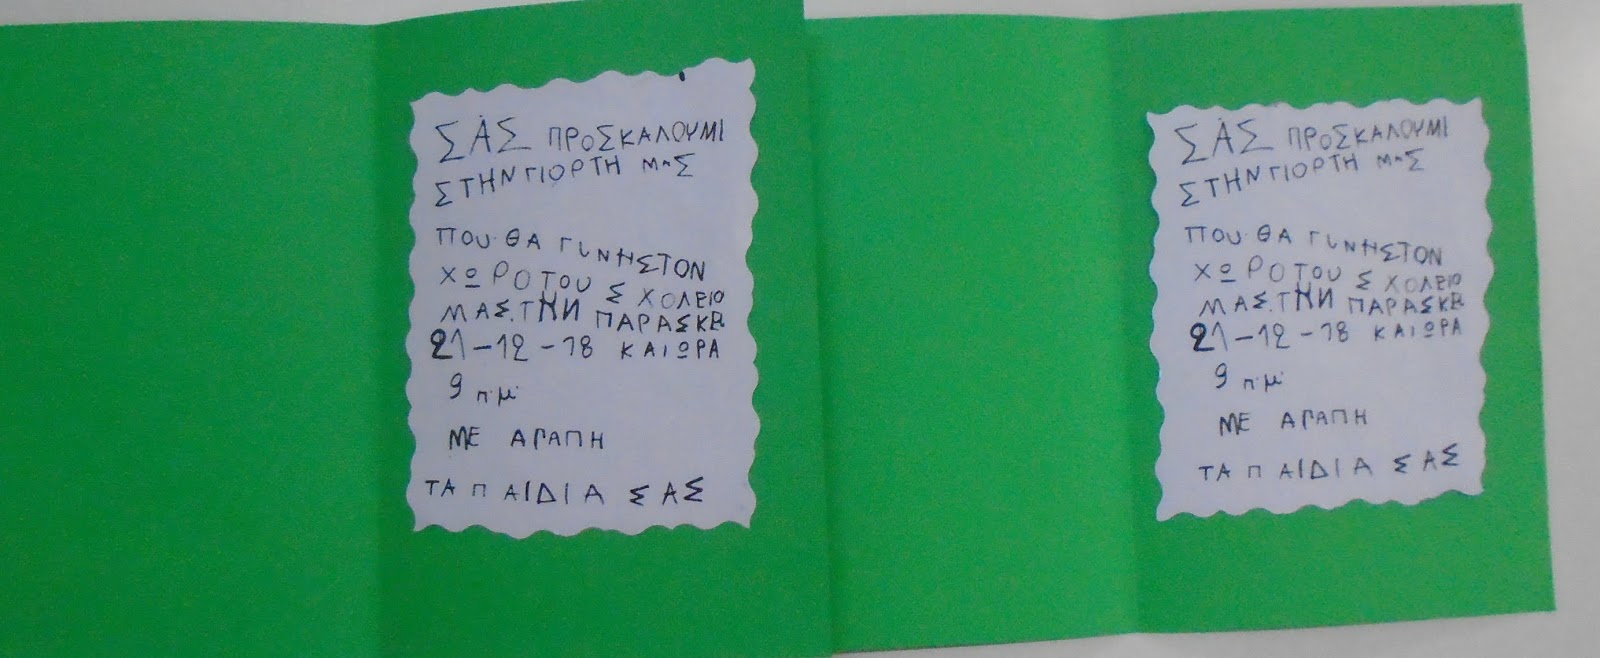 ΣΑΣ ΠΡΟΣΚΑΛΟΥΜΙ
ΣΤΗΝ ΓΙΟΡΤΗ ΜΑΣ
ΠΟΥ ΘΑ ΓΙΝΗ ΣΤΟΝ
ΧΩΡΟ ΤΟΥ ΣΧΟΛΕΙΟ
ΜΑΣ. ΤΗΝ ΠΑΡΑΣΚΕΒΙ
21-12-18 ΚΑΙ ΩΡΑ
9 π.μ.
ΜΕ ΑΓΑΠΗ
ΤΑ ΠΑΙΔΙΑ ΣΑΣ
ΣΑΣ ΠΡΟΣΚΑΛΟΥΜΙ
ΣΤΗΝ ΓΙΟΡΤΗ ΜΑΣ
ΠΟΥ ΘΑ ΓΙΝΗ ΣΤΟΝ
ΧΩΡΟ ΤΟΥ ΣΧΟΛΕΙΟ
ΜΑΣ. ΤΗΝ ΠΑΡΑΣΚΕΒΙ
21-12-18 ΚΑΙ ΩΡΑ
9 π.μ.
ΜΕ ΑΓΑΠΗ
ΤΑ ΠΑΙΔΙΑ ΣΑΣ